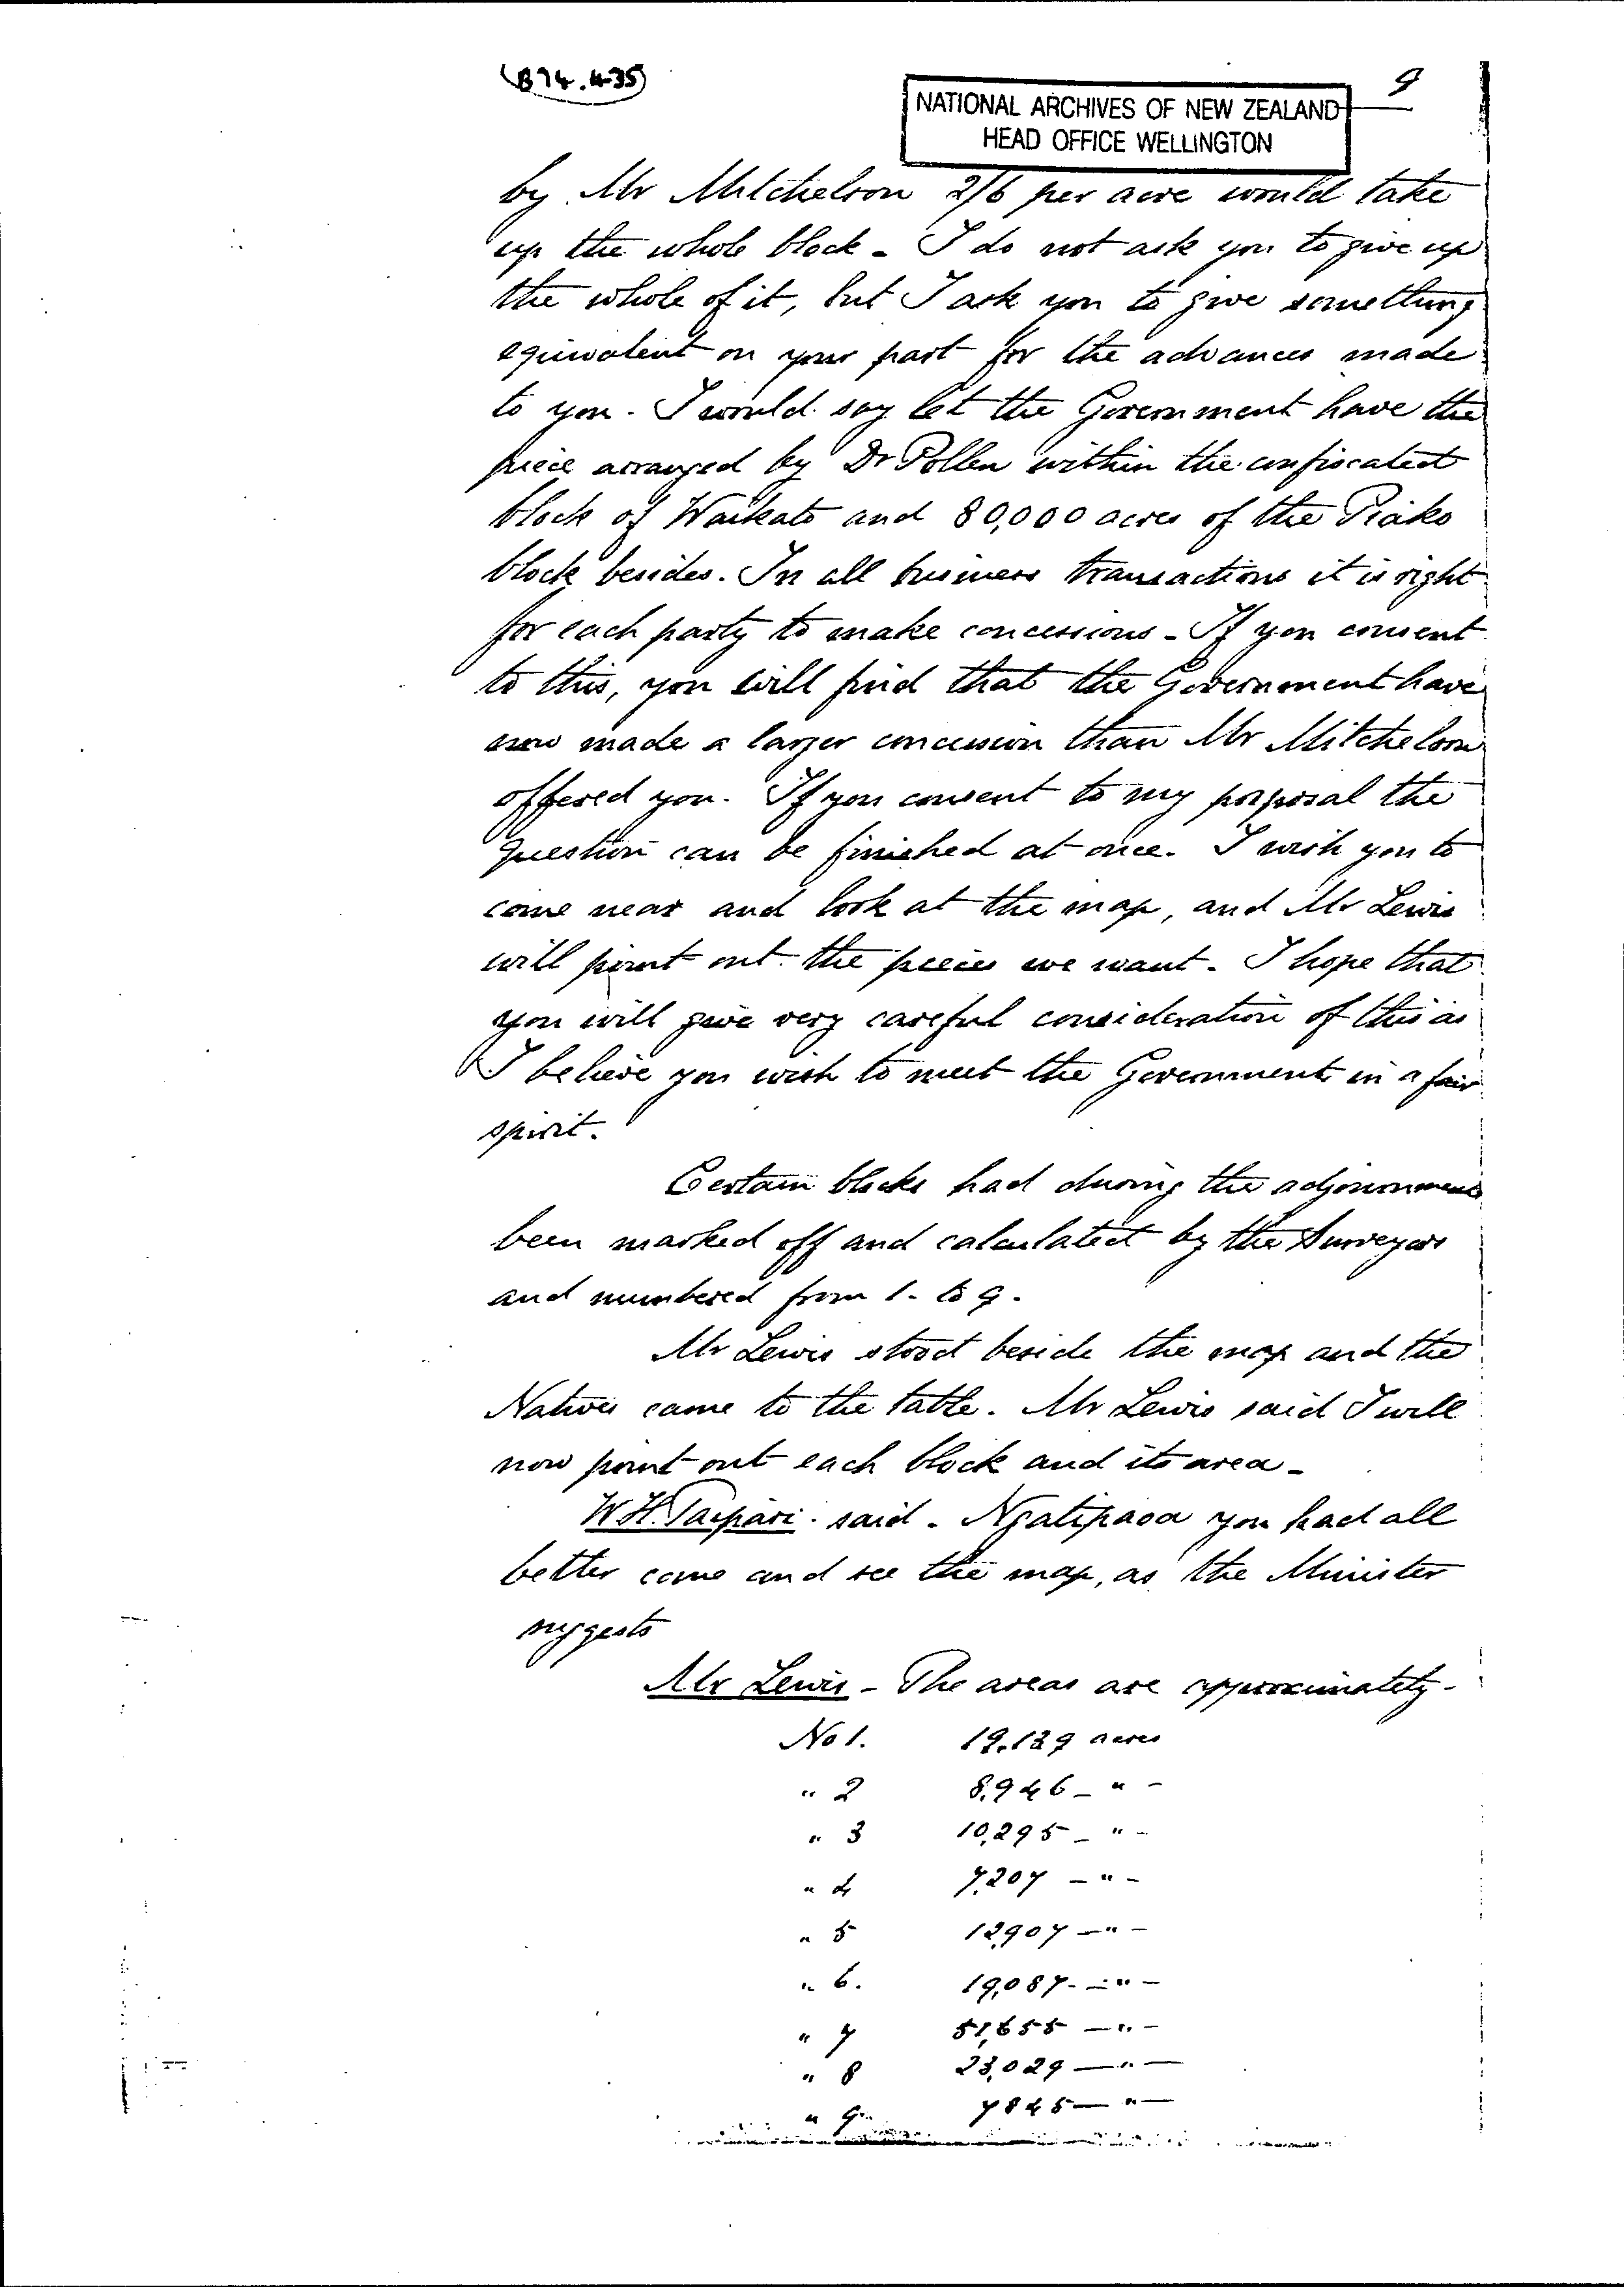 (B74.435)
9
NATIONAL ARCHIVES OF NEW ZEALAND
HEAD OFFICE WELLINGTON
by Mr Mitchelson 2/6 per acre would take
up the whole block - I do not ask you to give up
the whole of it, but I ask you to give something
equivalent on your part for the advances made
to you. I would say let the Government have the
piece arranged by Dr Pollen within the confiscated
block of Waikato and 80,000 acres of the Piako
block besides. In all business transactions it is right
for each party to make concessions - If you consent
to this, you will find that the Government have
now made a larger concession than Mr Mitchelson
offered you. If you consent to my proposal the
question can be finished at once. I wish you to
come near and look at the map, and Mr Lewis
will point out the pieces we want. I hope that
you will give very careful consideration of this as
I believe you wish to meet the Government in a fair
spirit.
Certain blocks had during the adjournment
been marked off and calculated by the Surveyors
and numbered from 1. to 9.
Mr Lewis stood beside the map and the
Natives came to the table. Mr Lewis said I will
now point out each block and its area -
W.H. Taipari. said - Ngatipaoa you had all
better come and see the map, as the Minister
suggests
Mr Lewis - The areas are approximately -
No 1. 19,139 acres
" 2 8,946 - " -
" 3 10,295 - " -
" 4 7,207 - " -
" 5 12,907 - " -
" 6. 19,087 - " -
" 7 51,655 - " -
" 8 23,029 - " -
" 9 7845 - " -